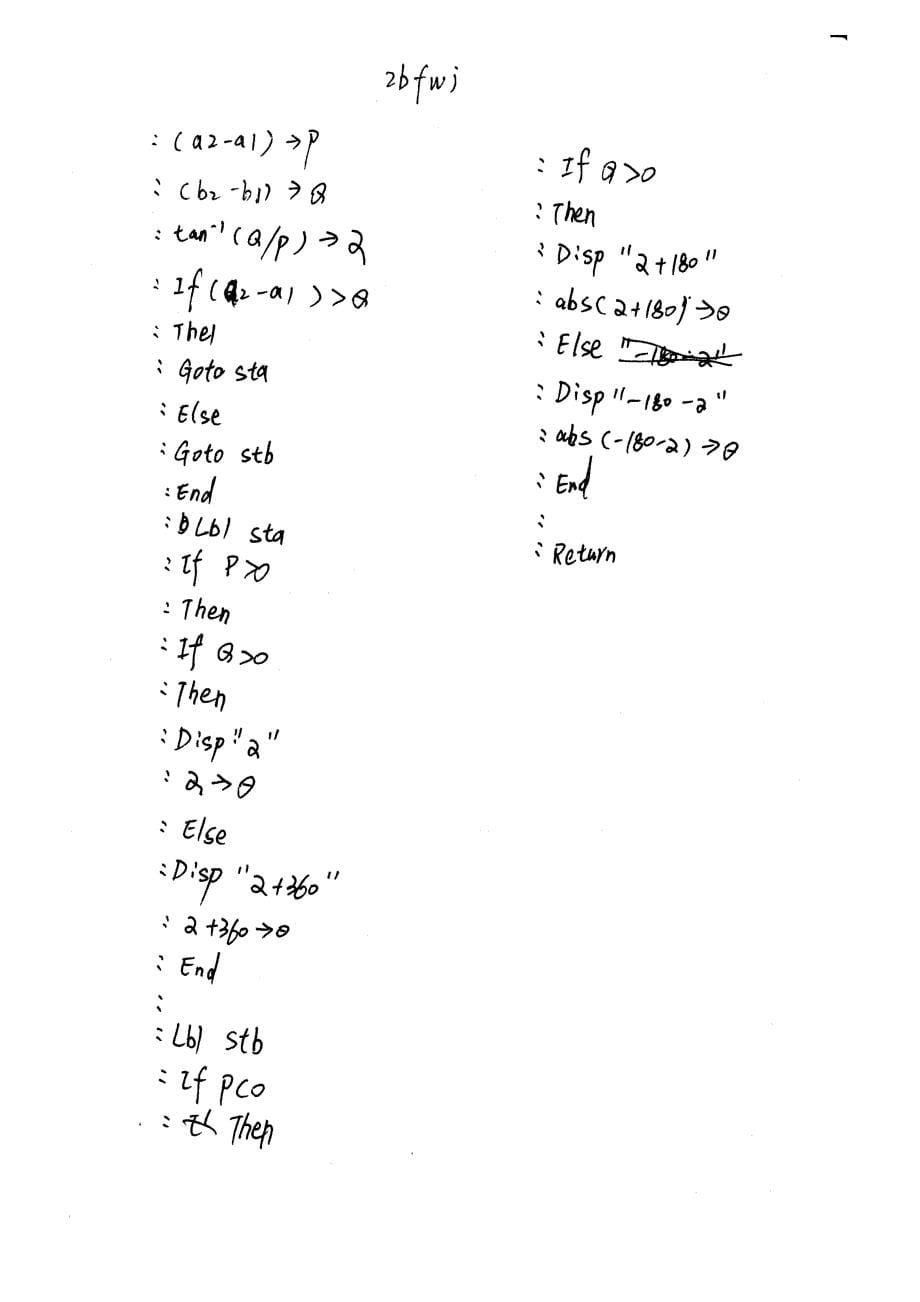 2bfwj
: (a2-a1)→P
: (b2-b1)→Q
: tan⁻¹(Q/P)→2
: If(a2-a1)>>Q
: Thel
: Goto sta
: Else
: Goto stb
: End
: Lbl sta
: If P>0
: Then
: If Q>0
: Then
: Disp "2"
: 2→θ
: Else
: Disp "2+360"
: 2+360→θ
: End
:
: Lbl stb
: If P<0
: Then
: If Q>0
: Then
: Disp "2+180"
: abs(2+180)→θ
: Else "-180-2"
: Disp "-180-2"
: abs(-180-2)→θ
: End
:
: Return